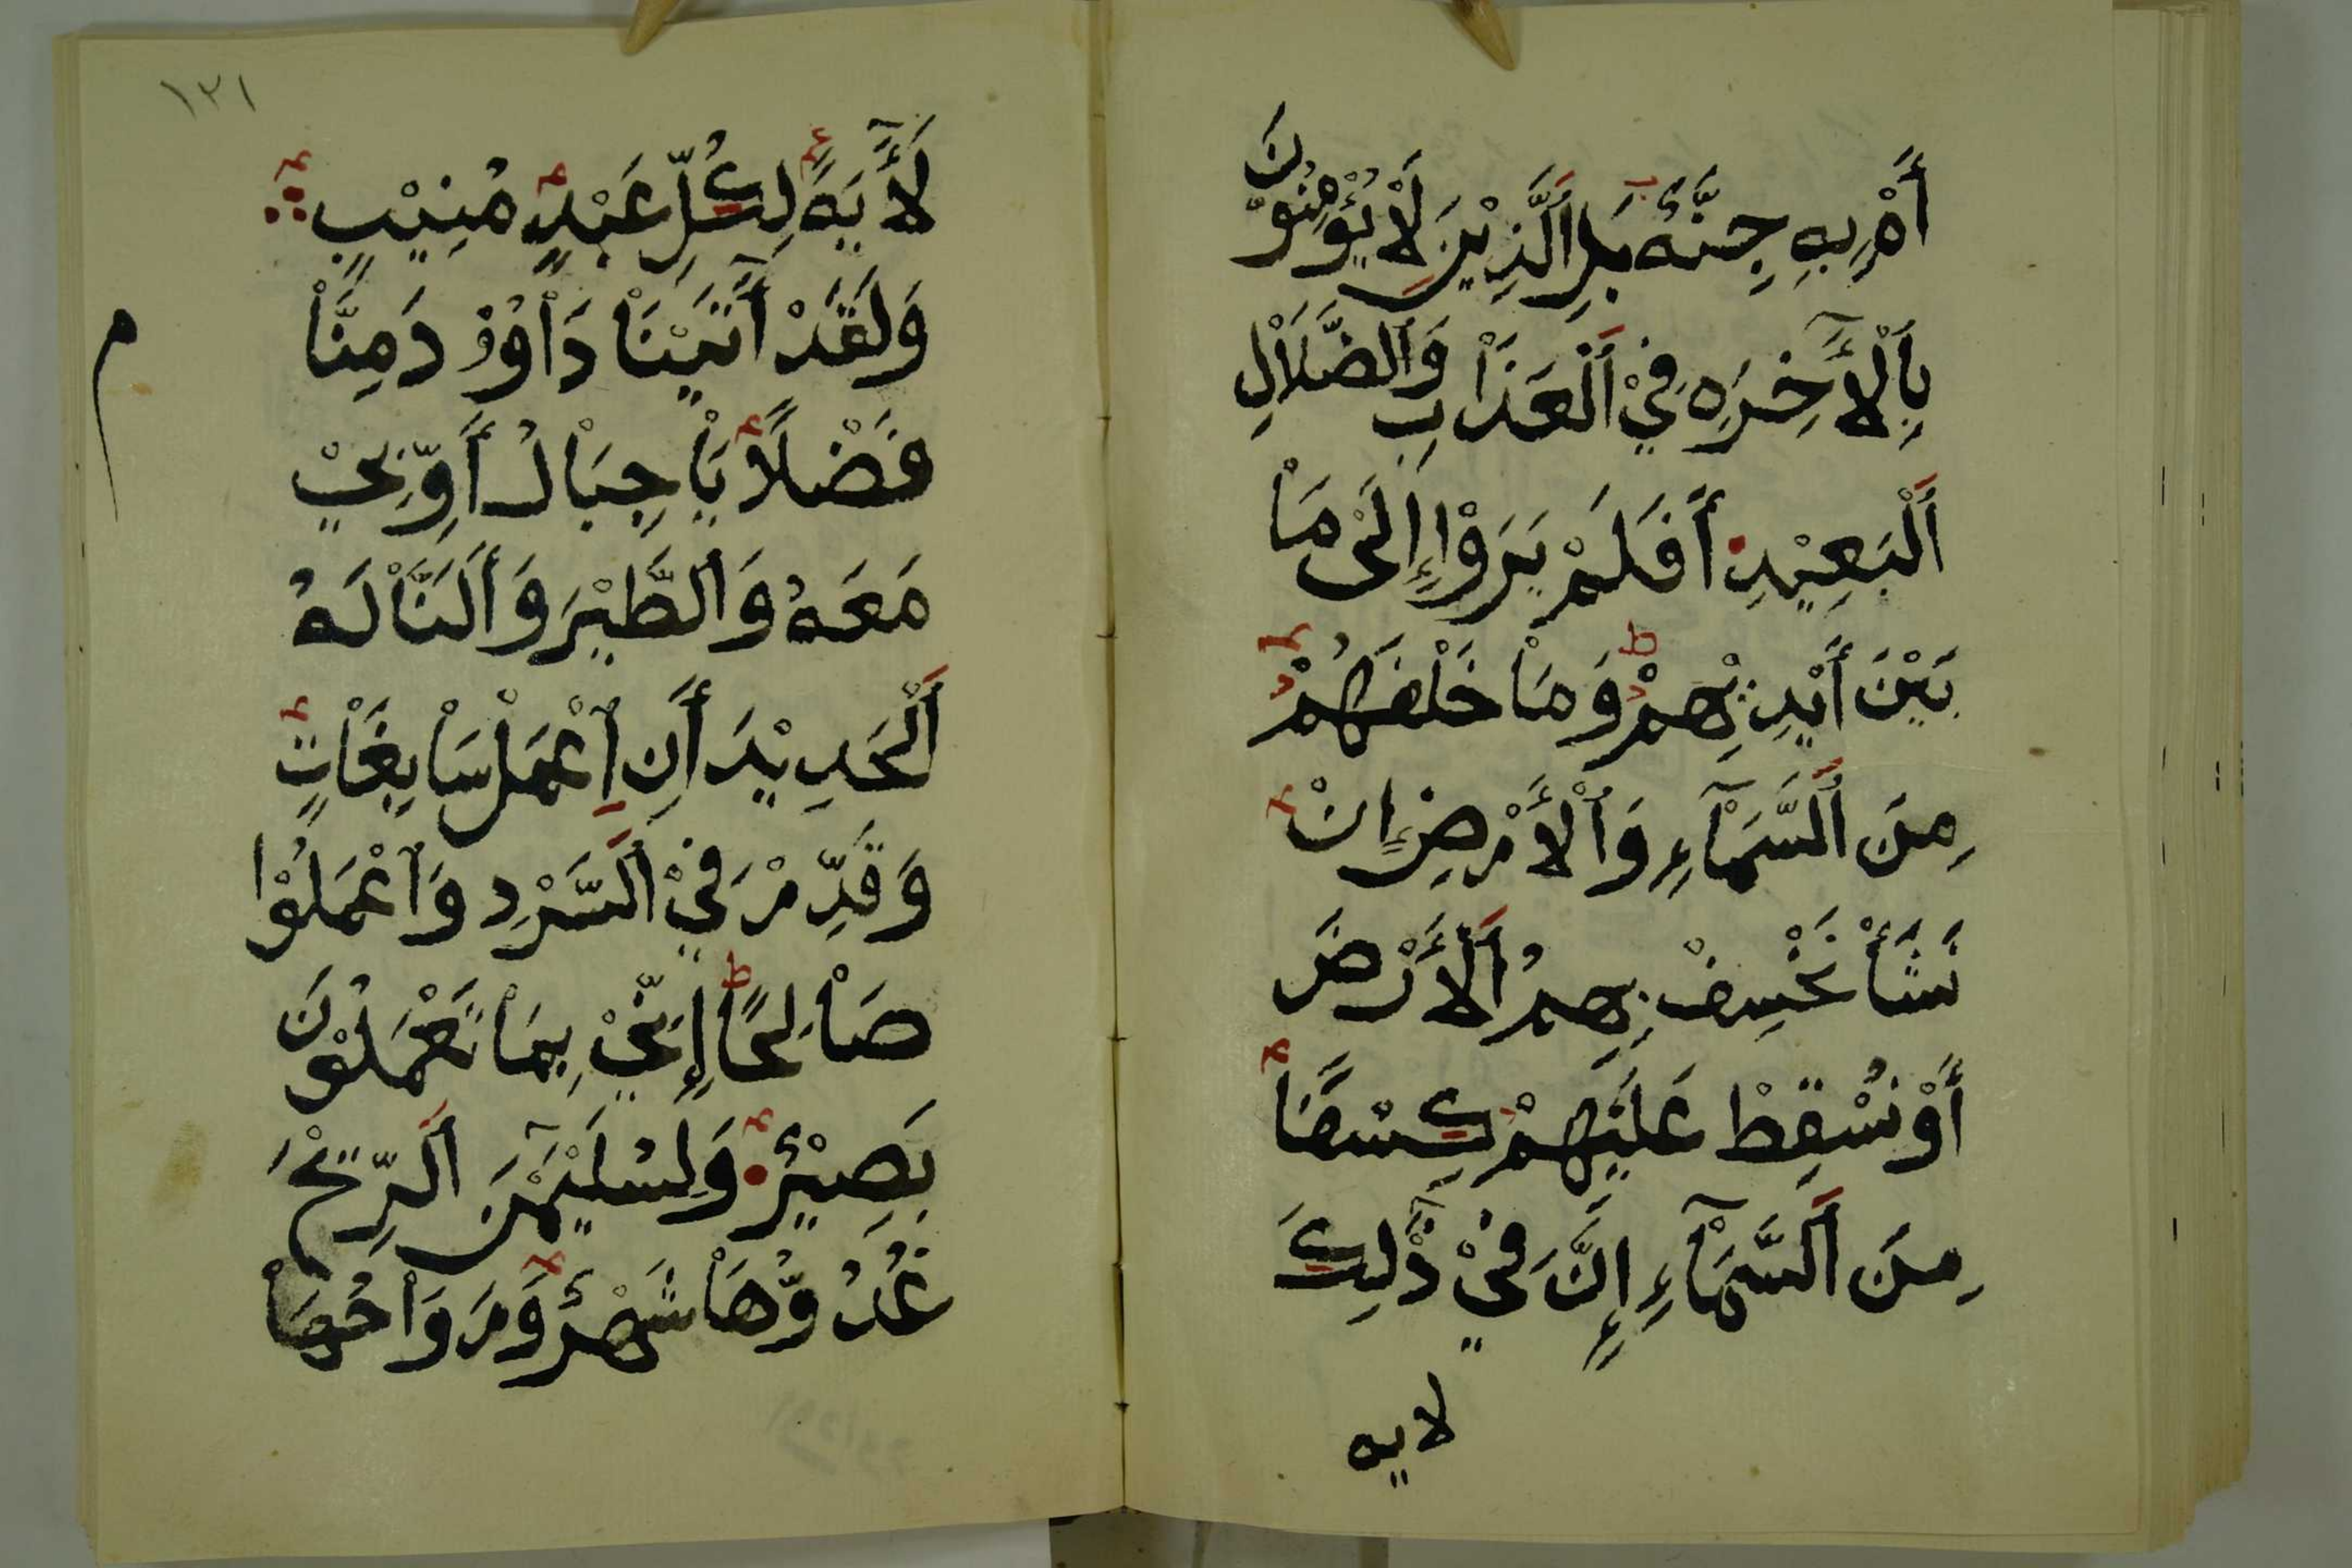 أَمْ بِهِ جِنَّةٌ بَلِ ٱلَّذِيْنَ لَاْ يُؤْمِنُوْنَ
بِٱلْأَّخِرَهِ فِيْ ٱلْعَذَاْبِ وَٱلضَّلَاْلِ
ٱلْبَعِيْدِ أَفَلَمْ يَرَوْا إِلَىْ مَاْ
بَيْنَ أَيْدِيْهِمْ وَمَاْ خَلْفَهُمْ
مِنَ ٱلسَّمَآءِ وَٱلْأَرْضِ إِنْ
نَشَأْ نَخْسِفْ بِهِمُ ٱلْأَرْضَ
أَوْ نُسْقِطْ عَلَيْهِمْ كِسْفًا
مِنَ ٱلسَّمَآءِ إِنَّ فِيْ ذَٰلِكَ
لايه
١٣١
لَأَّيَةً لِكُلِّ عَبْدٍ مُنِيْبٍ
وَلَقَدْ أَتَيْنَاْ دَاْوُوْدَ مِنَّاْ
فَضْلًا يَاْ جِبَاْلُ أَوِّبِيْ
مَعَهُ وَٱلطَّيْرَ وَأَلَنَّاْ لَهُ
ٱلْحَدِيْدَ أَنِ ٱعْمَلْ سَاْبِغَاْتٍ
وَقَدِّرْ فِيْ ٱلسَّرْدِ وَٱعْمَلُوْا
صَاْلِحًا إِنِّيْ بِمَاْ تَعْمَلُوْنَ
بَصِيْرٌ وَلِسُلَيْمَٰنَ ٱلرِّيْحَ
غُدُوُّهَاْ شَهْرٌ وَرَوَاْحُهَاْ
م